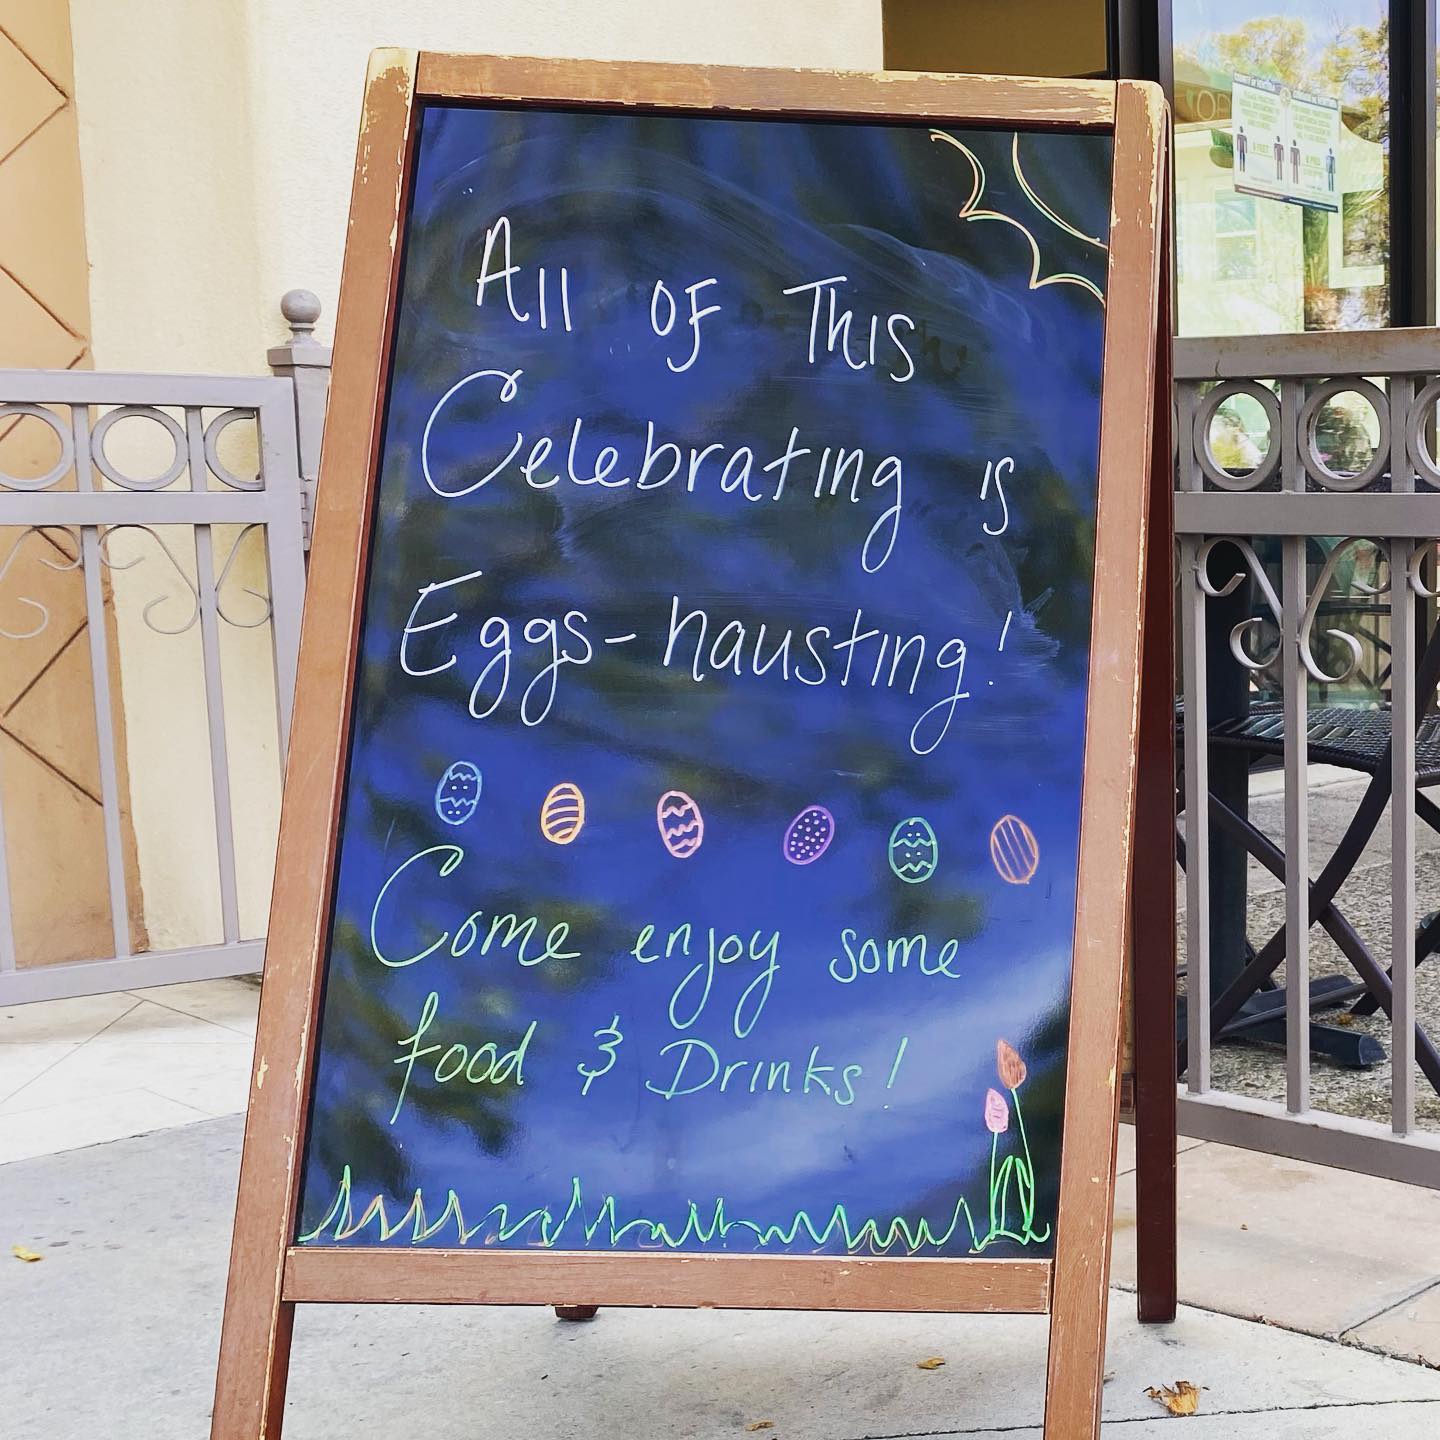 All OF This
Celebrating is
Eggs-hausting!
Come enjoy some
food & Drinks!
6 FEET
6 FEET